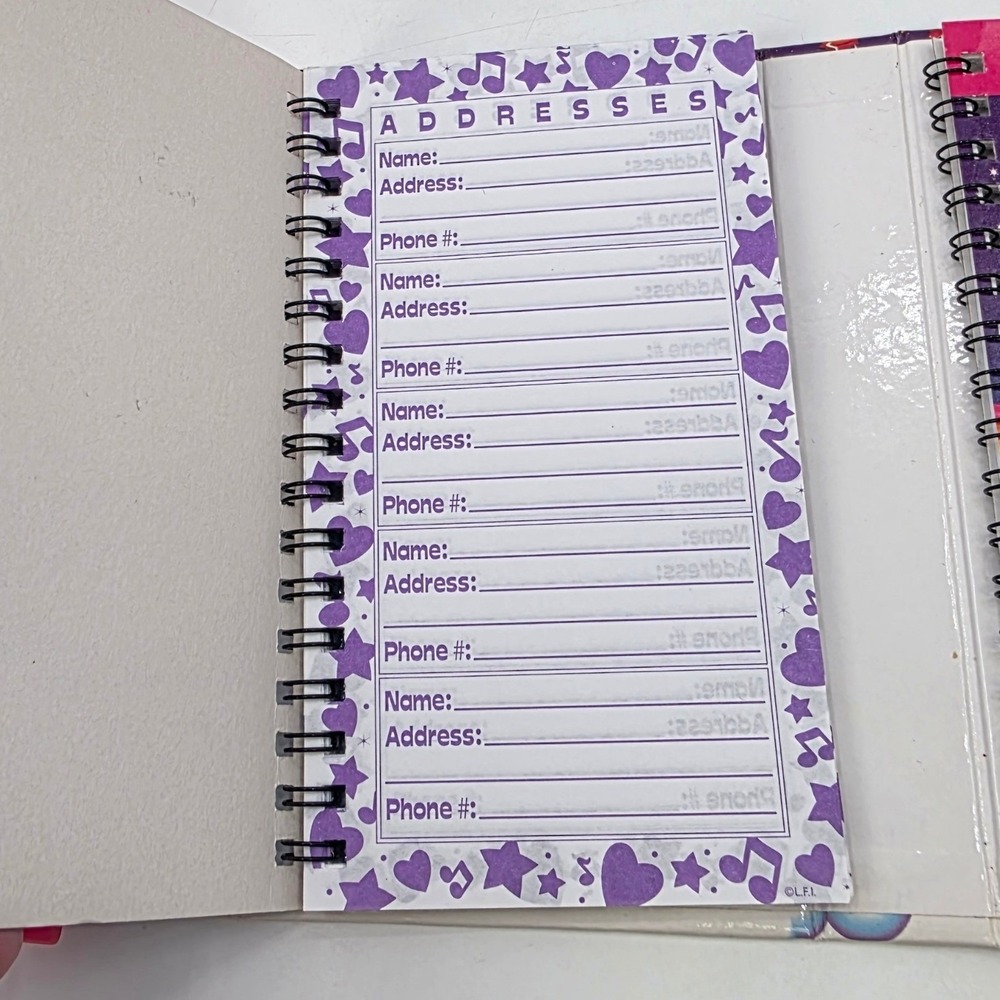 ADDRESSES
Name:
Address:
Phone #:
Name:
Address:
Phone #:
Name:
Address:
Phone #:
Name:
Address:
Phone #:
Name:
Address:
Phone #:
©L.F.I.